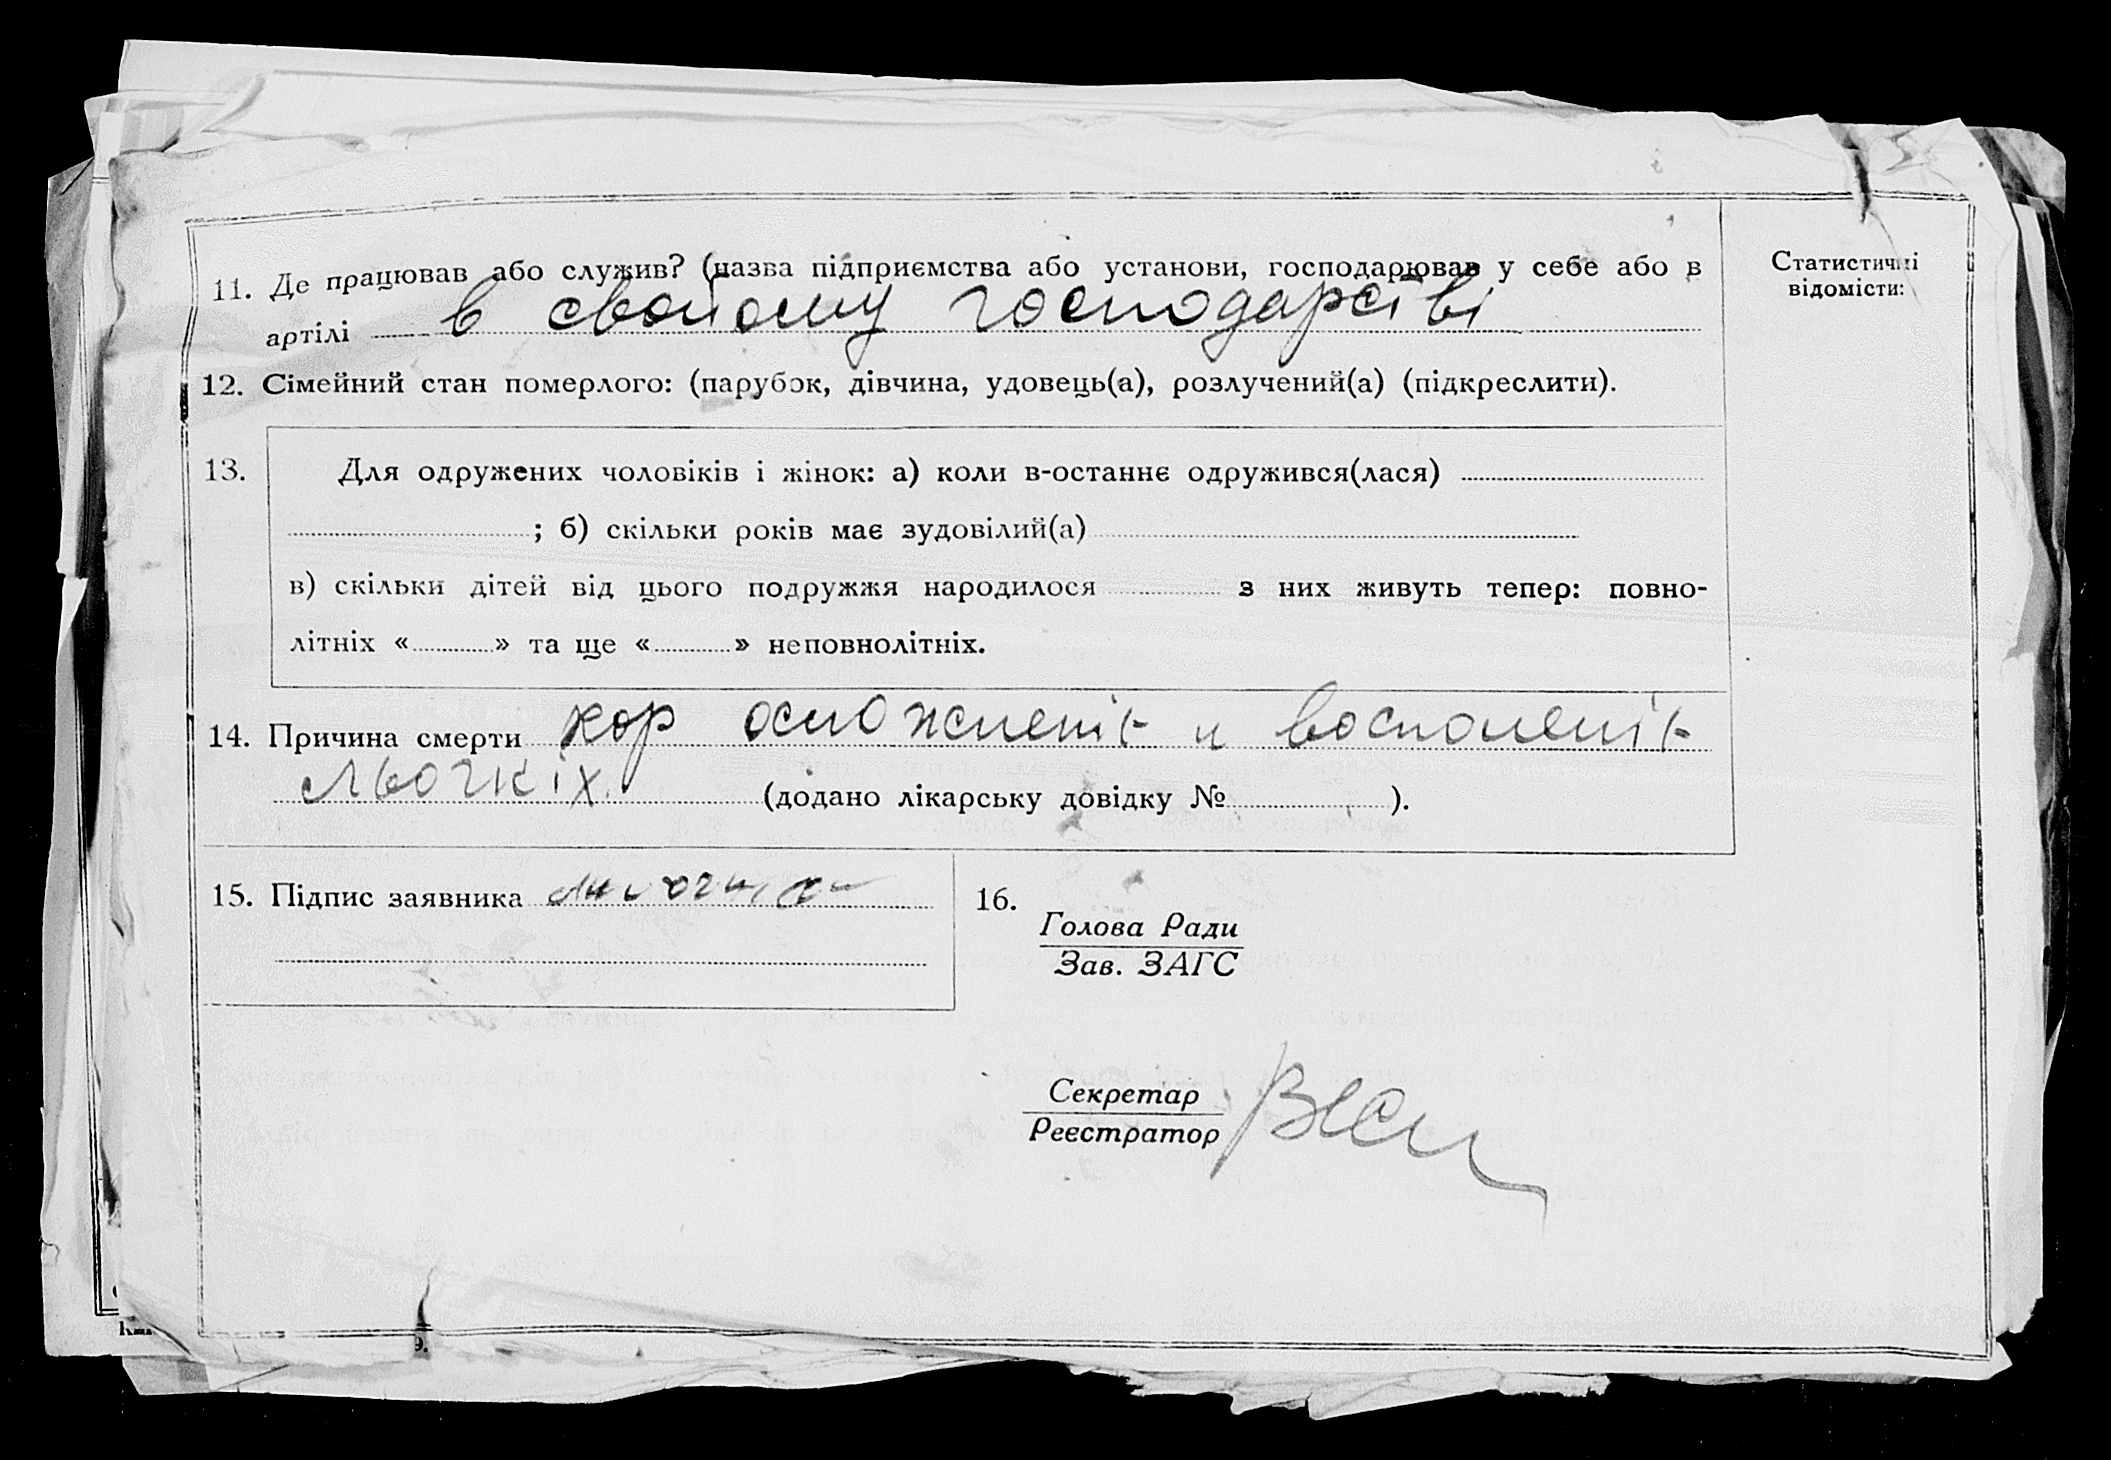 11. Де працював або служив? (назва підприємства або установи, господарював у себе або в
артілі в свойому господарстві
Статистичні
відомісти:
12. Сімейний стан померлого: (парубок, дівчина, удовець(а), розлучений(а) (підкреслити).
13. Для одружених чоловіків і жінок: а) коли в-останнє одружився(лася)
; б) скільки років має зудовілий(а)
в) скільки дітей від цього подружжя народилося з них живуть тепер: повно-
літніх « » та ще « » неповнолітніх.
14. Причина смерти кор осложнения и восполения
льогкіх. (додано лікарську довідку № ).
15. Підпис заявника
16.
Голова Ради
Зав. ЗАГС
Секретар
Реєстратор
9.